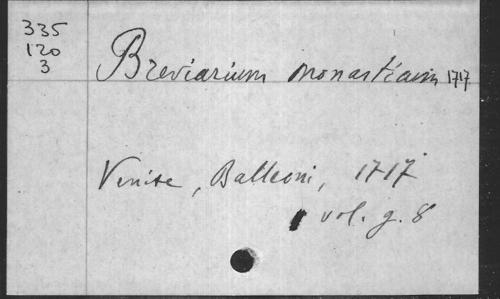 335
120
3
Breviarium monasticum 1717
Venise, Balleoni, 1717
1 vol. g. 8